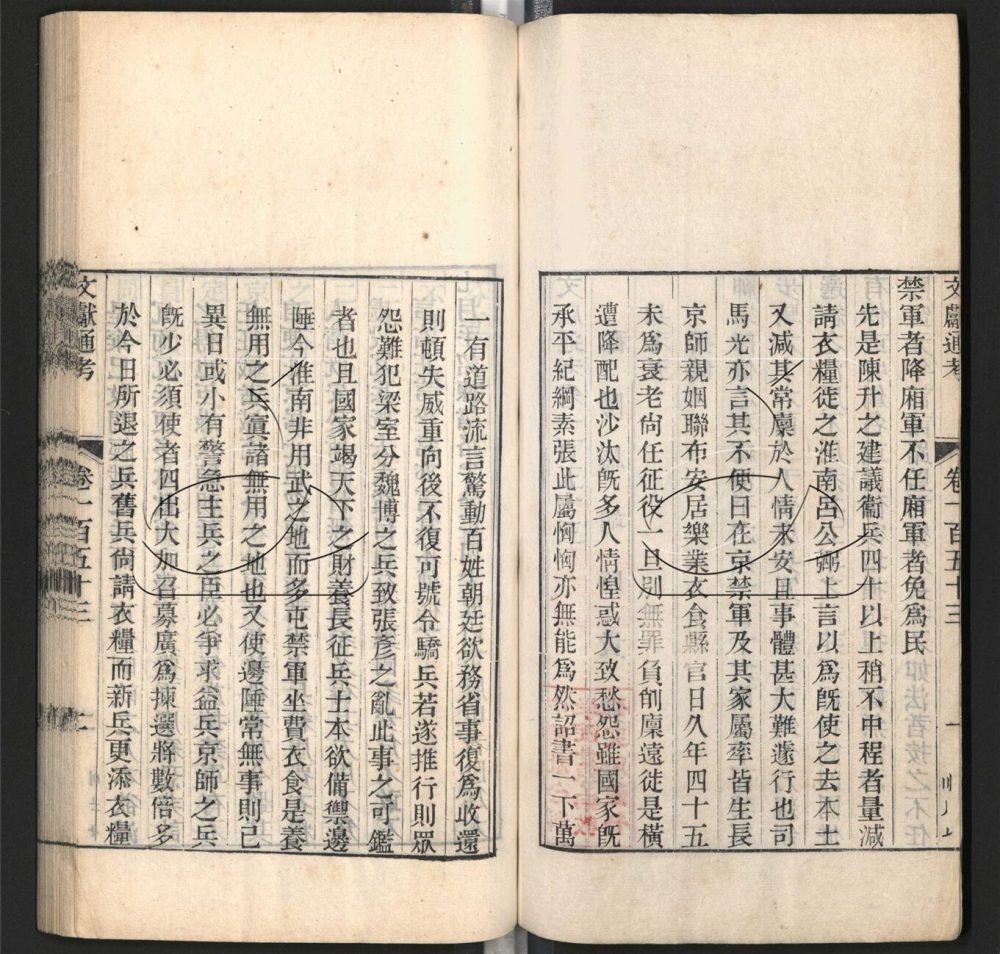 文獻通考 卷一百五十三 一
禁軍者降廂軍不任廂軍者免爲民
先是陳升之建議衞兵四十以上稍不中程者量減
請衣糧徙之淮南呂公弼上言以爲旣使之去本土
又減其常廩於人情未安且事體甚大難遽行也司
馬光亦言其不便曰在京禁軍及其家屬率皆生長
京師親姻聯布安居樂業衣食縣官日久年四十五
未爲衰老尙任征役一旦別無罪負削廩遠徙是橫
遭降配也沙汰旣多人情惶惑大致愁怨雖國家旣
承平紀綱素張此屬恟恟亦無能爲然詔書一下萬
一有道路流言驚動百姓朝廷欲務省事復爲收還
則頓失威重向後不復可號令驕兵若遂推行則眾
怨難犯梁室分魏博之兵致張彥之亂此事之可鑑
者也且國家竭天下之財養長征兵士本欲備禦邊
陲今淮南非用武之地而多屯禁軍坐費衣食是養
無用之兵寘諸無用之地也又使邊陲常無事則已
異日或小有警急主兵之臣必爭求益兵京師之兵
旣少必須使者四出大加召募廣爲揀選將數倍多
於今日所退之兵舊兵尙請衣糧而新兵更添衣糧
文獻通考 卷一百五十三 二